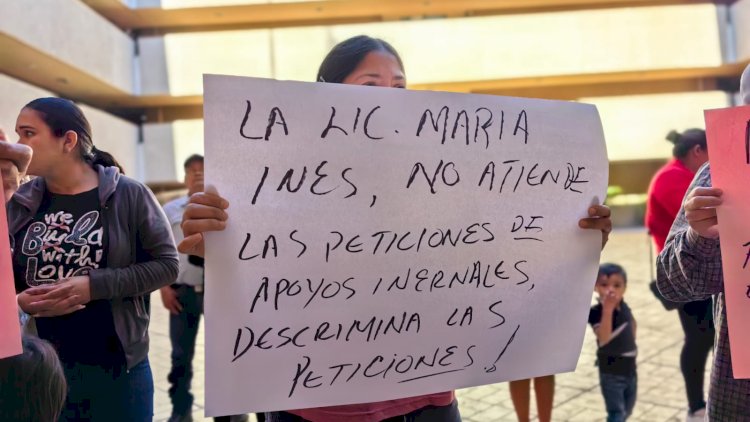 LA LIC. MARIA
INES, NO ATIENDE
LAS PETICIONES DE
APOYOS INERNALES,
DESCRIMINA LAS
PETICIONES!
we
Build
with
Love